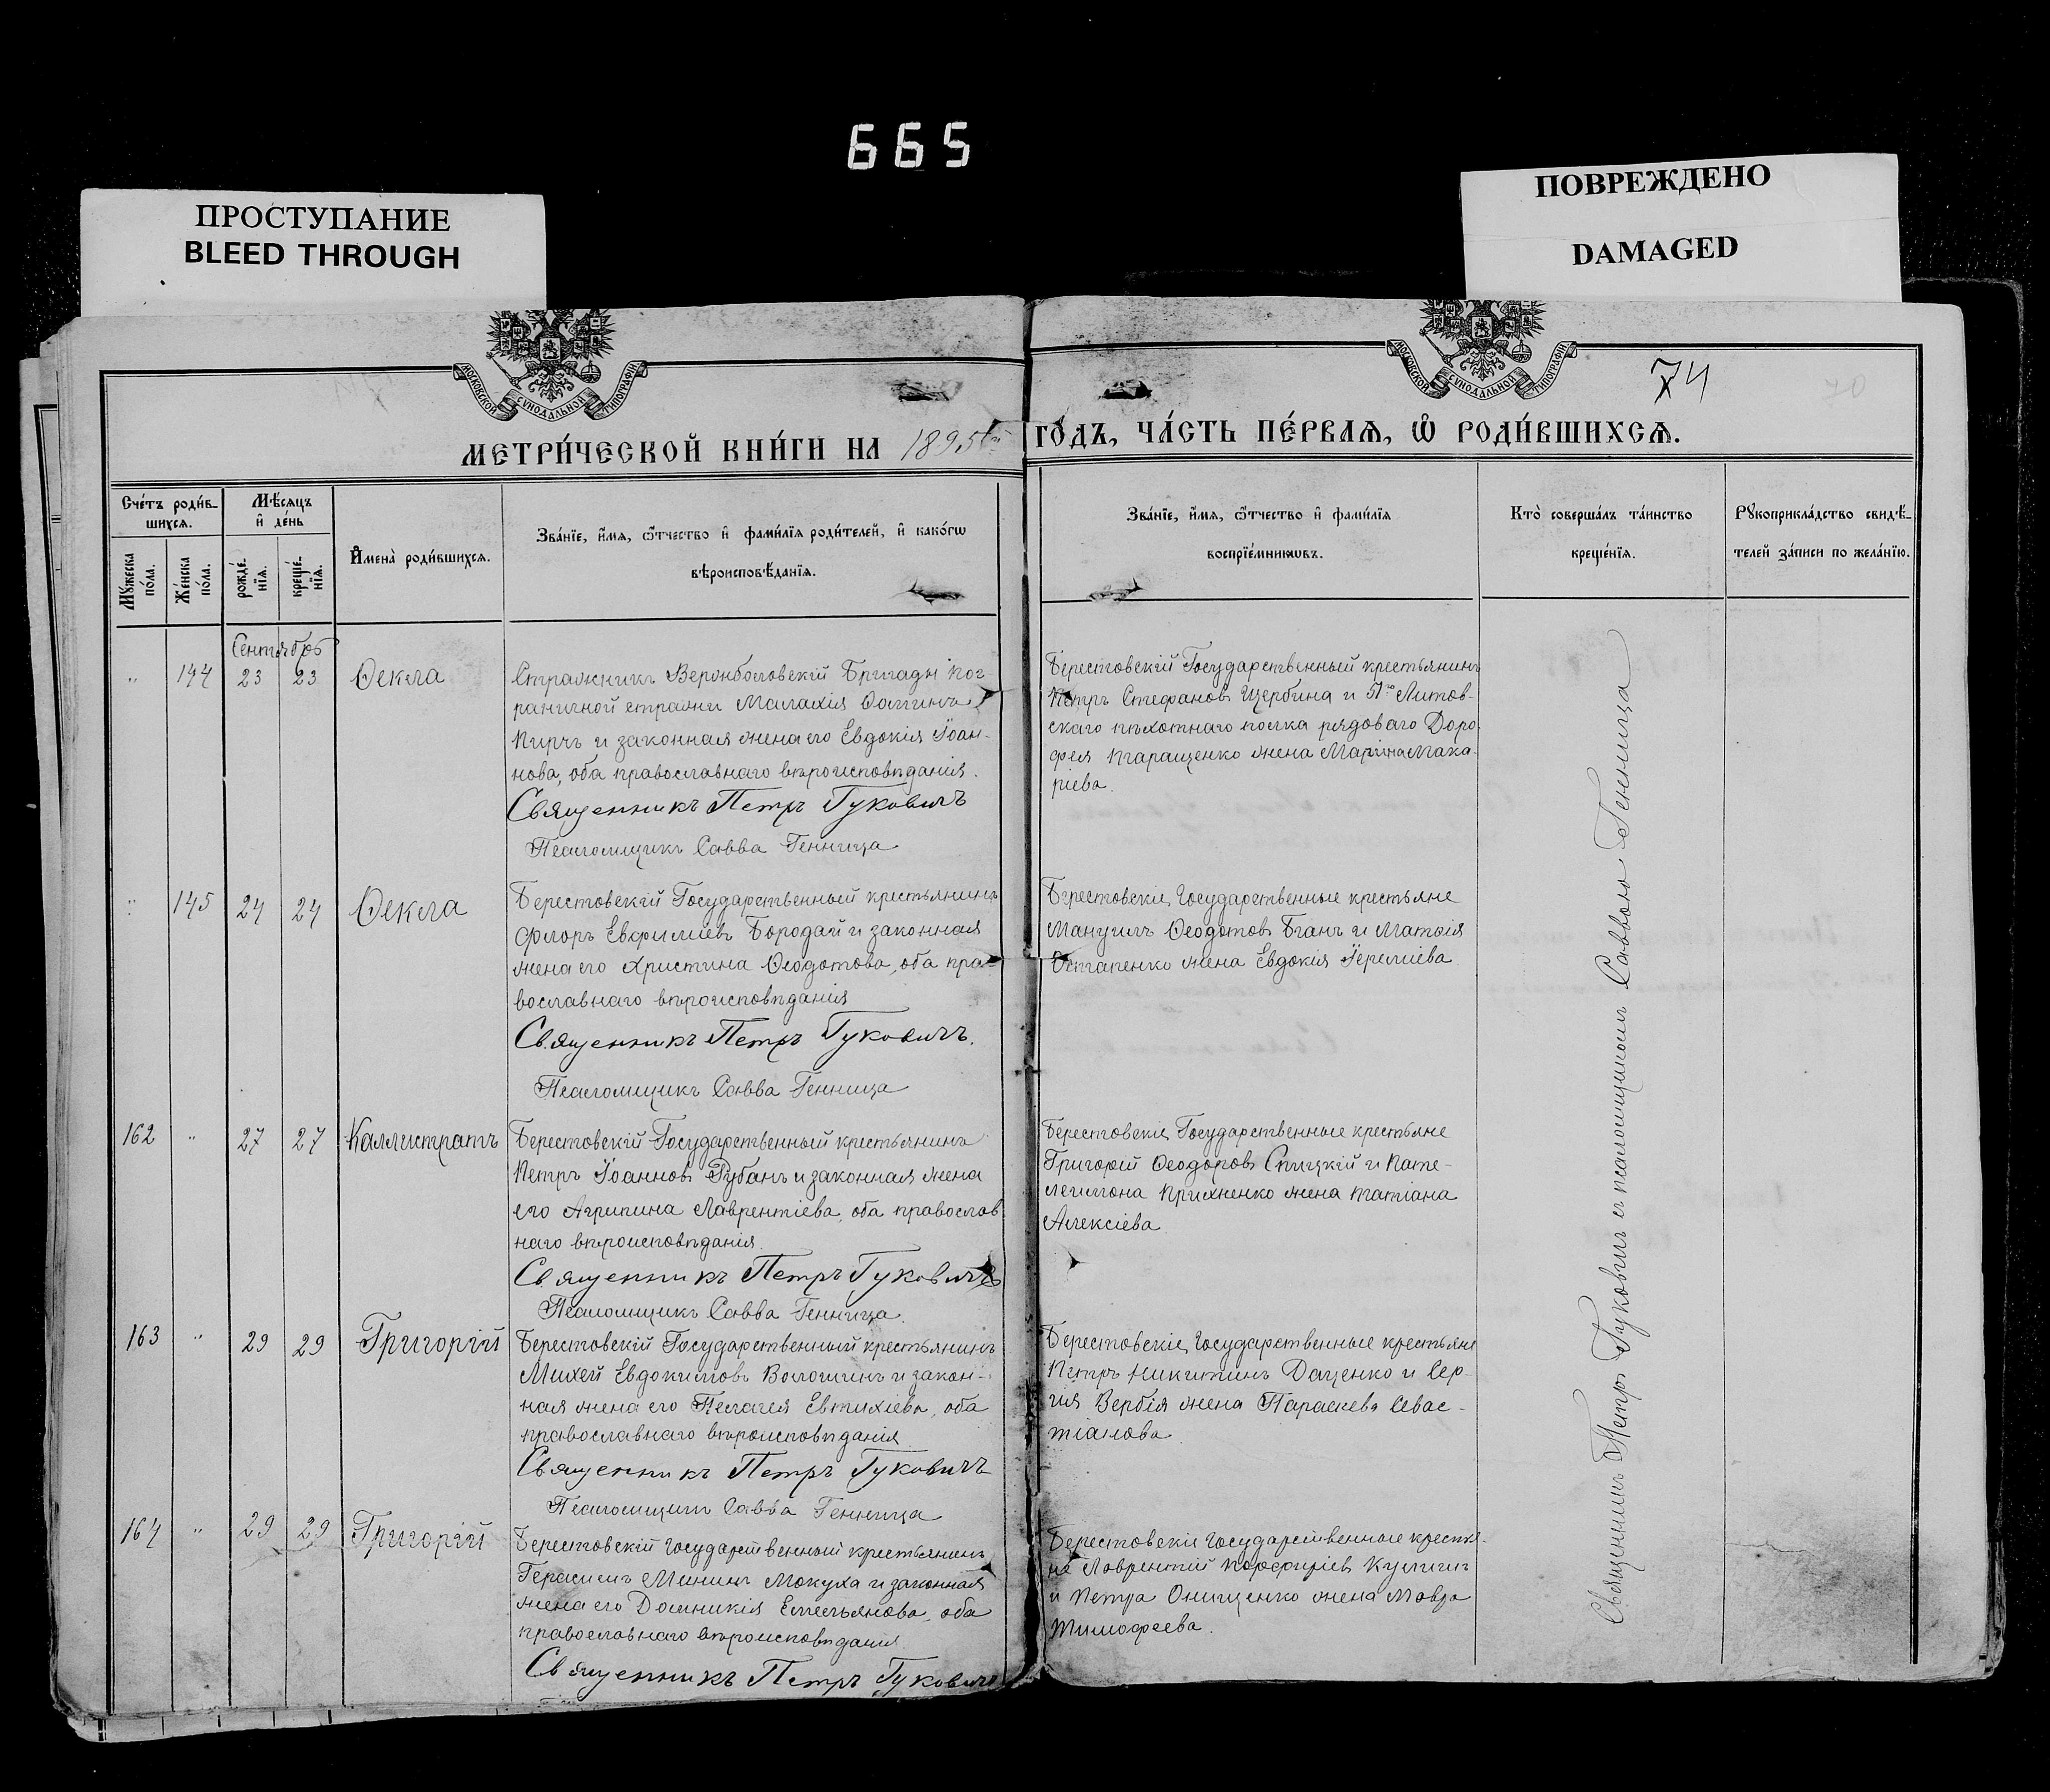 665
ПРОСТУПАНИЕ
BLEED THROUGH
ПОВРЕЖДЕНО
DAMAGED
МОСКОВСКОЙ СУНОДАЛЬНОЙ ТИПОГРАФІИ
МОСКОВСКОЙ СУНОДАЛЬНОЙ ТИПОГРАФІИ
74
70
МЕТРИ́ЧЕСКОЙ КНИ́ГИ НА 1895й ГО́ДЪ, ЧА́СТЬ ПЕ́РВАѦ, Ѡ҆ РОДИ́ВШИХСѦ.
Сче́тъ роди́в-
шихсѧ.
Мꙋжеска по́ла.
Же́нска по́ла.
Мѣ́сѧцъ
и҆ де́нь
рожде́-
нїѧ.
креще́-
нїѧ.
И҆мена̀ роди́вшихсѧ.
Зва́нїе, и҆́мѧ, ѻ҆́тчество и҆ фами́лїѧ роди́телей, и҆ како́гѡ
вѣроисповѣ́данїѧ.
Зва́нїе, и҆́мѧ, ѻ҆́тчество и҆ фами́лїѧ
воспрїе́мникѡвъ.
Кто̀ соверша́лъ та́инство
креще́нїѧ.
Рꙋкоприкла́дство свидѣ́-
телей за́писи по жела́нїю.
Сентябрь
" 144 23 23 Ѳекла
Стражникъ Бригады пог
раничной стражи Малахія Ѳоминъ
Кирчъ и законная жена его Евдокія Іоан-
нова, оба православнаго вѣроисповѣданія.
Священникъ Петръ Гуковичъ
Псаломщикъ Савва Генница
Берестовскій Государственный крестьянинъ
Петръ Стефановъ Щербина и 51го Литов-
скаго пѣхотнаго полка рядоваго Доро-
фея Таращенко жена Марина Мака-
ріева.
" 145 24 24 Ѳекла
Берестовскій Государственный крестьянинъ
Флоръ Евфиміевъ Бородай и законная
жена его Христина Ѳеодотова, оба пра-
вославнаго вѣроисповѣданія
Священникъ Петръ Гуковичъ.
Псаломщикъ Савва Генница
Берестовскіе Государственные крестьяне
Мануилъ Ѳеодотовъ Бганъ и Матѳія
Остапенко жена Евдокія Іереміева
162 " 27 27 Каллистратъ
Берестовскій Государственный крестьянинъ
Петръ Іоанновъ Рубанъ и законная жена
его Агрипина Лаврентіева, оба православ-
наго вѣроисповѣданія.
Священникъ Петръ Гуковичъ
Псаломщикъ Савва Генница.
Берестовскіе Государственные крестьяне
Григорій Ѳеодоровъ Спицкій и Пате-
леимона Прихненко жена Татіана
Алексіева
163 " 29 29 Григорій
Берестовскій Государственный крестьянинъ
Михей Евдокимовъ Волошинъ и закон-
ная жена его Пелагея Евтихіева, оба
православнаго вѣроисповѣданія
Священникъ Петръ Гуковичъ
Псаломщикъ Савва Генница
Берестовскіе Государственные крестьяне
Петръ Никитинъ Даценко и Сер-
гія Вербія жена Параскева Севас-
тіанова.
164 " 29 29 Григорій
Берестовскій Государственный крестьянинъ
Герасимъ Мининъ Мокуха и законная
жена его Домникія Емельянова, оба
православнаго вѣроисповѣданія
Священникъ Петръ Гуковичъ
Берестовскіе Государственные крестья-
не Лаврентій Порфиріевъ Куличъ
и Петра Онищенко жена Мавра
Тимофеева.
Священникъ Петръ Гуковичъ съ псаломщикомъ Саввою Генница